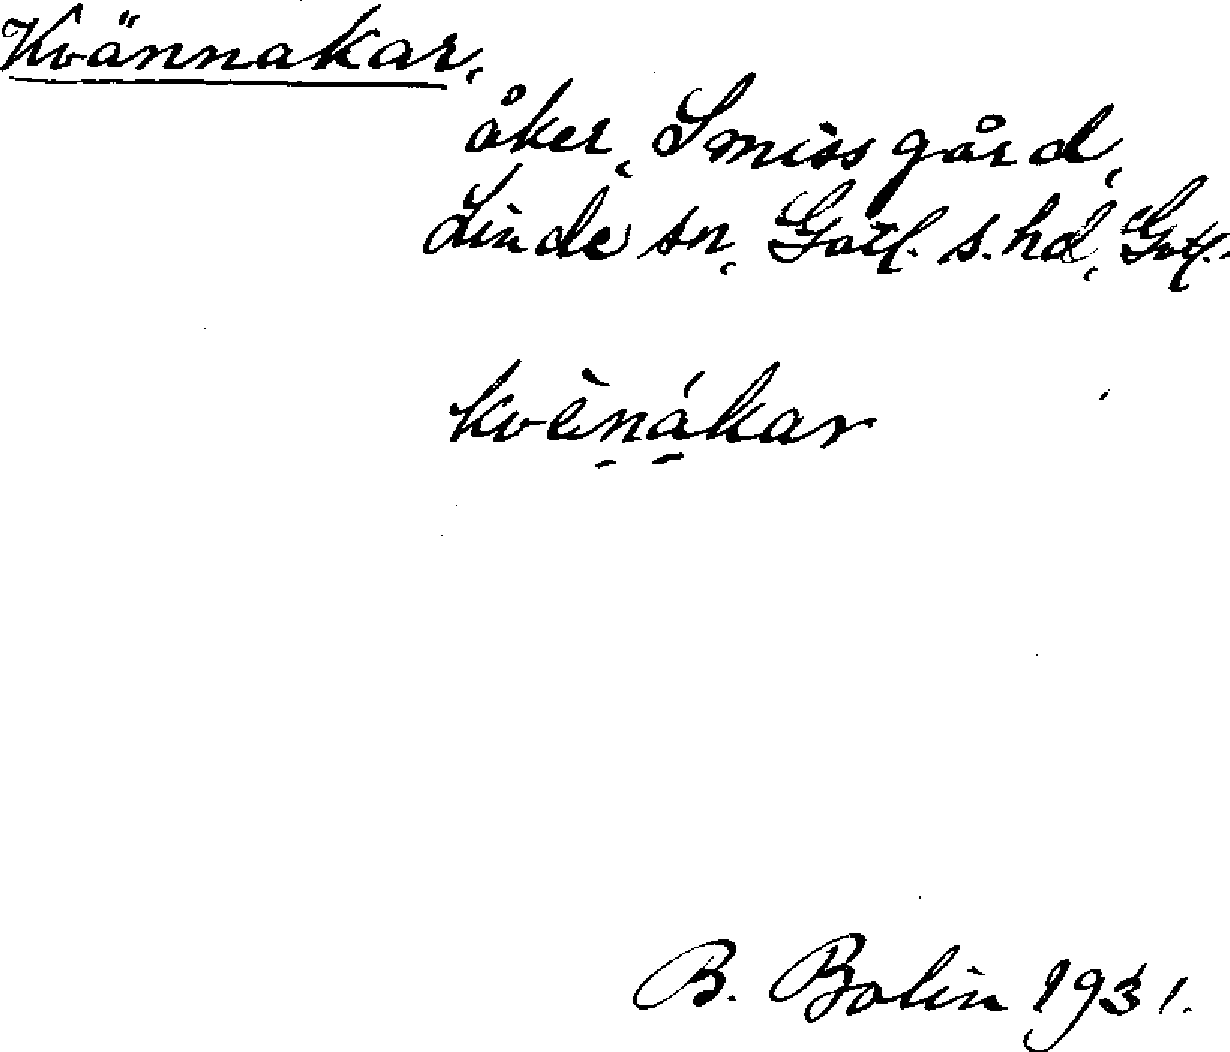 Kvännakar,
åker, Smiss gård,
Linde sn, Gotl. s. hd, Gotl.
kvènákar
B. Bolin 1931.